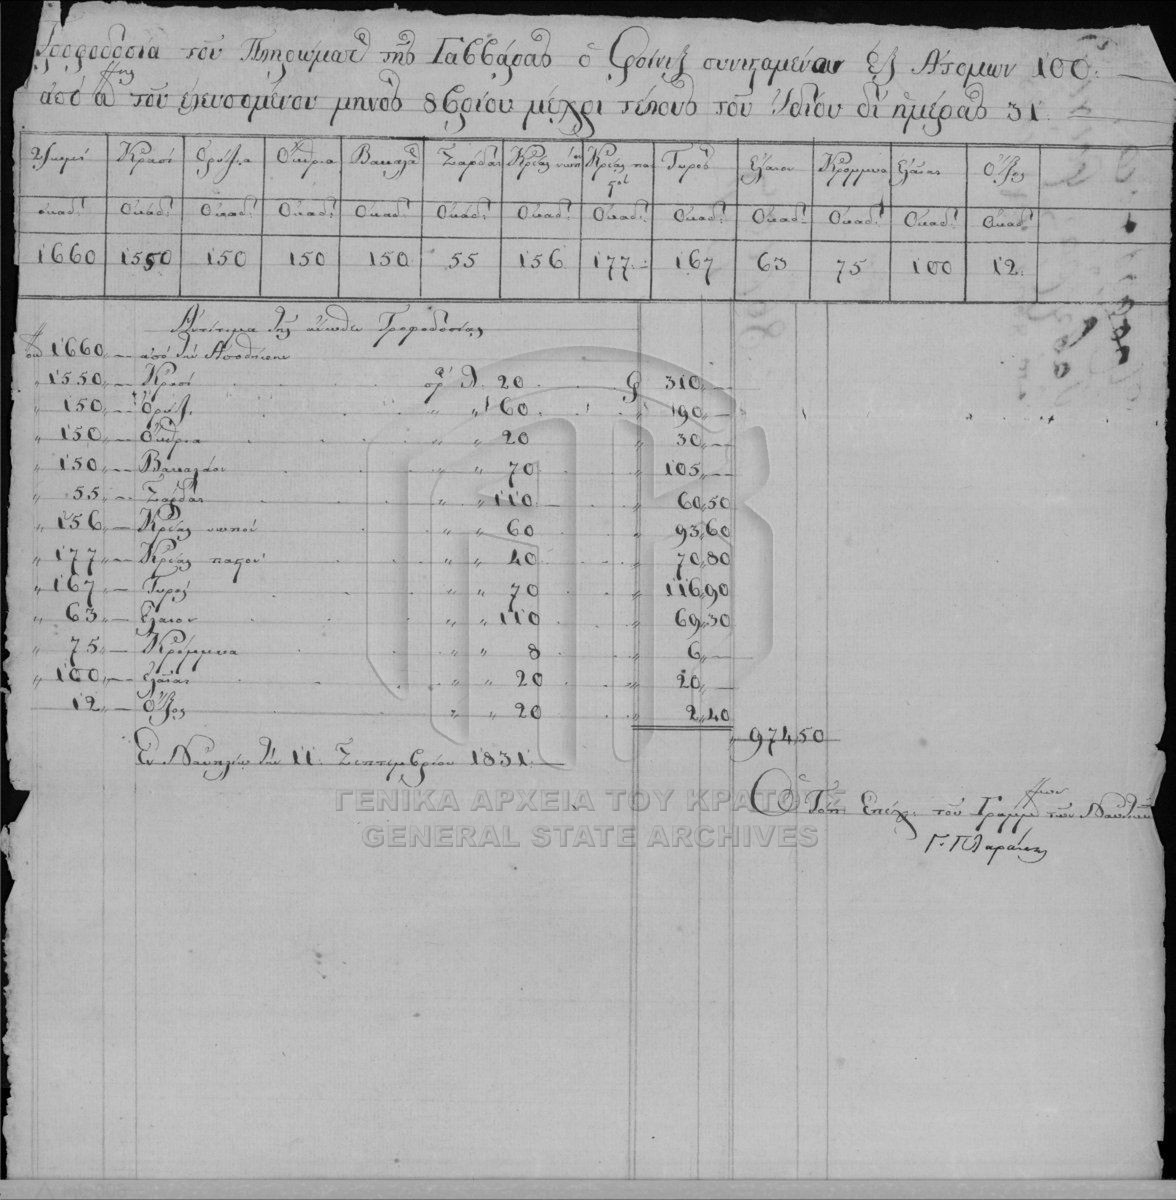 Τροφοδοσία τοῦ Πληρώματ. τῆς Γαββάρας ὁ Φοίνιξ συνισταμένου ἐξ Ἀτόμων 100.
ἀπὸ α ης τοῦ ἐλευσομένου μηνὸς 8βρίου μέχρι τέλους τοῦ Ἰδίου δι' ἡμέρας 31.
Ψωμί Κρασί Ὀρύζια Ὄσπρια Βακαλά Σαρδέλ Κρέας νωπὸν Κρέας παστόν Τυρὸς Ἔλαιον Κρομμυα Ἐλαίας Ὄξος
ὀκάδ: Ὀκάδ: Ὀκάδ: Ὀκάδ: Ὀκάδ: Ὀκάδ: Ὀκάδ: Ὀκάδ: Ὀκάδ: Ὀκάδ: Ὀκάδ: Ὀκάδ: Ὀκάδ:
1660 1550 150 150 150 55 156 177 167 63 75 100 12
Ἀντίτιμα τῆς ἄνωθεν Τροφοδοσίας
ὀκ 1660 „ — ἀπὸ τὴν Ἀποθήκην
„ 1550 „ — Κρασί πρ λ 20 φ 310 „ —
„ 150 „ — Ὀρύζ. „ „ 60 „ 90 „ —
„ 150 „ — Ὄσπρια „ „ 20 „ 30 „ —
„ 150 „ — Βακαλάου „ „ 70 „ 105 „ —
„ 55 „ — Σαρδέλ „ „ 110 „ 60,50
„ 156 „ — Κρέας νωπόν „ „ 60 „ 93,60
„ 177 „ — Κρέας παστόν „ „ 40 „ 70,80
„ 167 „ — Τυρός „ „ 70 „ 116,90
„ 63 „ — Ἔλαιον „ „ 110 „ 69,30
„ 75 „ — Κρόμμυα „ „ 8 „ 6 „ —
„ 100 „ — ἐλαίας „ „ 20 „ 20 „ —
12 „ — Ὄξος „ „ 20 „ 2,40
„ 974,50
Ἐν Ναυπλίῳ τὴν 11 Σεπτεμβρίου 1831. —
Ὁ Τοπ: Ἐπιμελ: τοῦ Γραμμ τῶν Ναυτικῶν
Γ.
ΓΕΝΙΚΑ ΑΡΧΕΙΑ ΤΟΥ ΚΡΑΤΟΥΣ
GENERAL STATE ARCHIVES